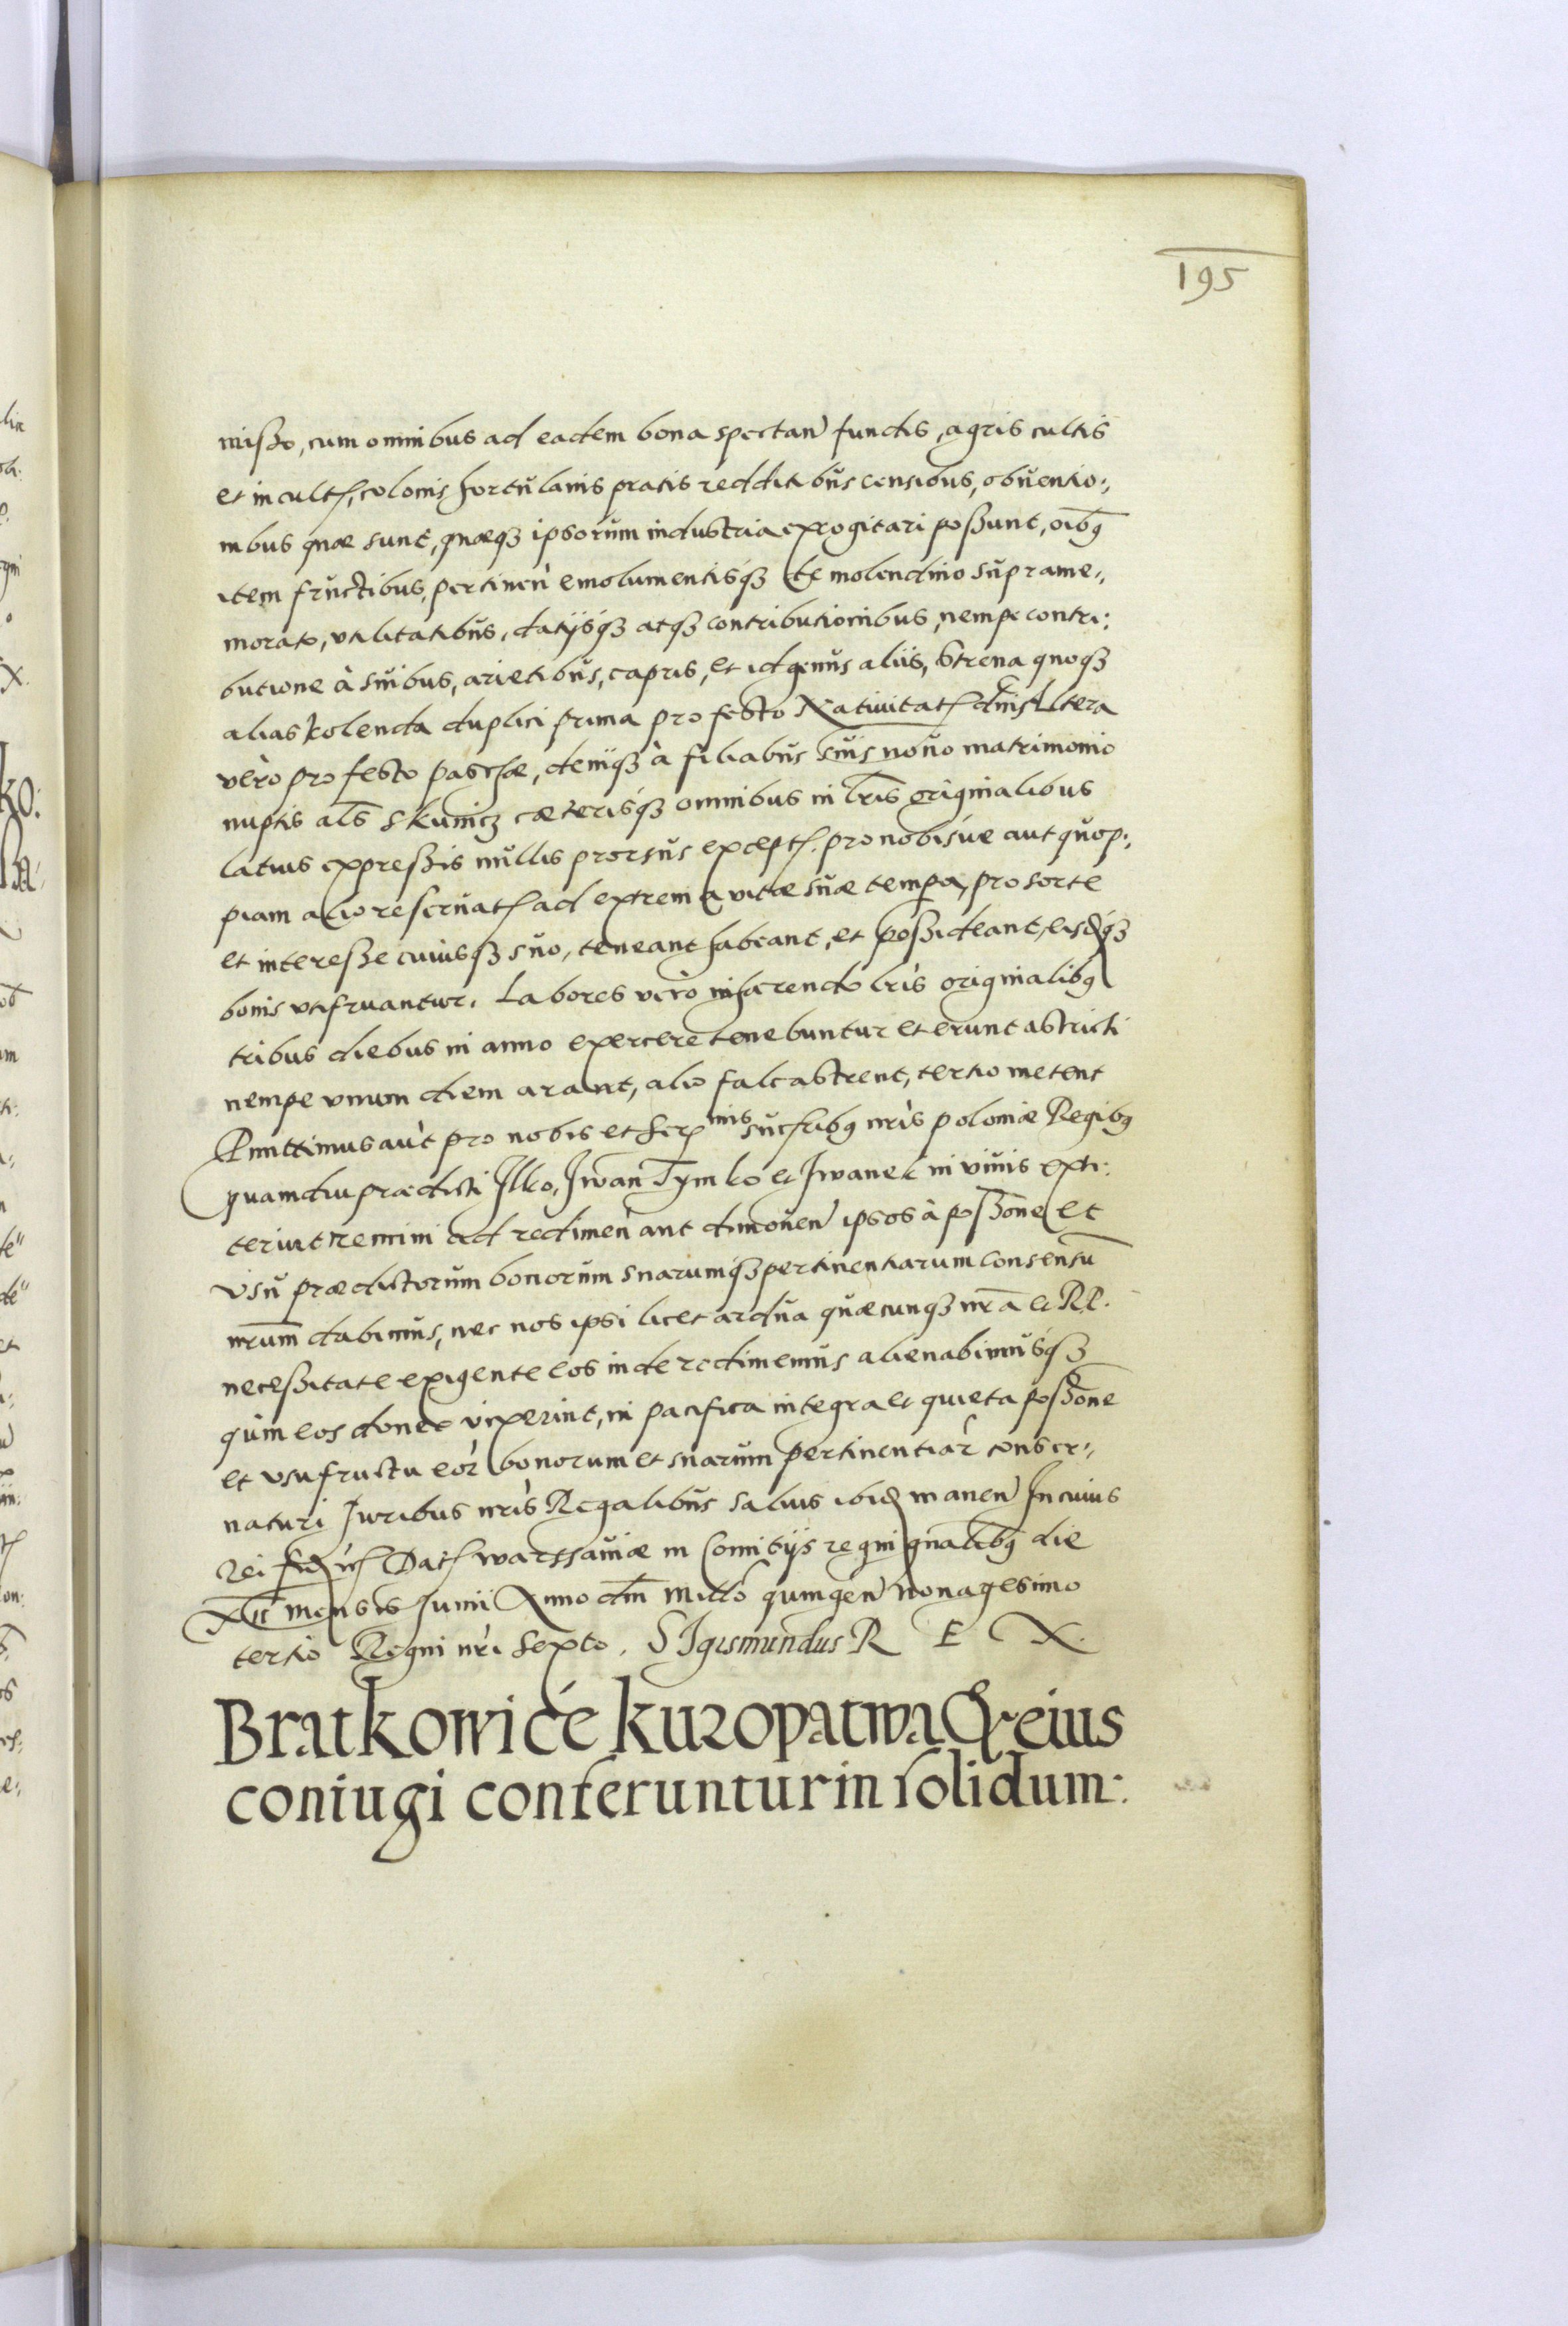 195
misso, cum omnibus ad eadem bona spectan fundis, agris cultis
et incult, colonis hortulanis pratis redditibus censibus, obuentio:,
nibus quae sunt, quaeq3 ipsorum industria excogitari possunt, oib9
item fructibus, pertinen emolumentisq3 de molendino suprame:,
morato, vtilitatibus, datijsq3 atq3 contributionibus, nempe contri:
butione à suibus, arietibus, capris, et id genus aliis, Strena quoq3
alias Kolenda duplici prima pro festo Natiuitat dni Altera
vero pro festo paschae, deniq3 à filiabus suis nouo matrimonio
nuptis als Skunicz caeterisq3 omnibus in lris originalibus
latius expressis nullis prorsus except. pro nobisue aut quop:,
piam alio reseruat ad extrema vitae suae tempa, pro sorte
et interesse cuiusq3 suo, teneant habeant, et possideant, eisdq3
bonis vtifruantur. Labores vero inhaerendo lris originalib9
tribus diebus in anno exercere tenebuntur et erunt astricti
nempe vnum diem arant, alio falcastrent, tertio metent
Pmittimus aut pro nobis et Ser nis sucsrib9 nris poloniae Regib9
quamdiu praedicti Ilko, Jwan Tymko et Jwanek in viuis exti:
terint nemini ad redimen aut dimouen ipsos à possone et
vsu praedictorum bonorum suarumq3 pertinentiarum consensu
nrum dabimus, nec nos ipsi licet ardua quaecunq3 nra et R.P.
necessitate exigente eos inde redimemus alienabimusq3
quin eos donec vixerint, in pacifica integra et quieta possone
et vsufructu eor bonorum et suarum pertinentiar conser:,
naturi Juribus nris Regalibus saluis ibid manen In cuius
rei fid Dat warssauiae in Comitijs regni gnalib9 die
XII mensis Junii Anno dni Millo quingen Nonagesimo
tertio Regni nri Sexto. SIgismundus R E X.
Bratkowice kuropatwa & eius
coniugi conferuntur in solidum: